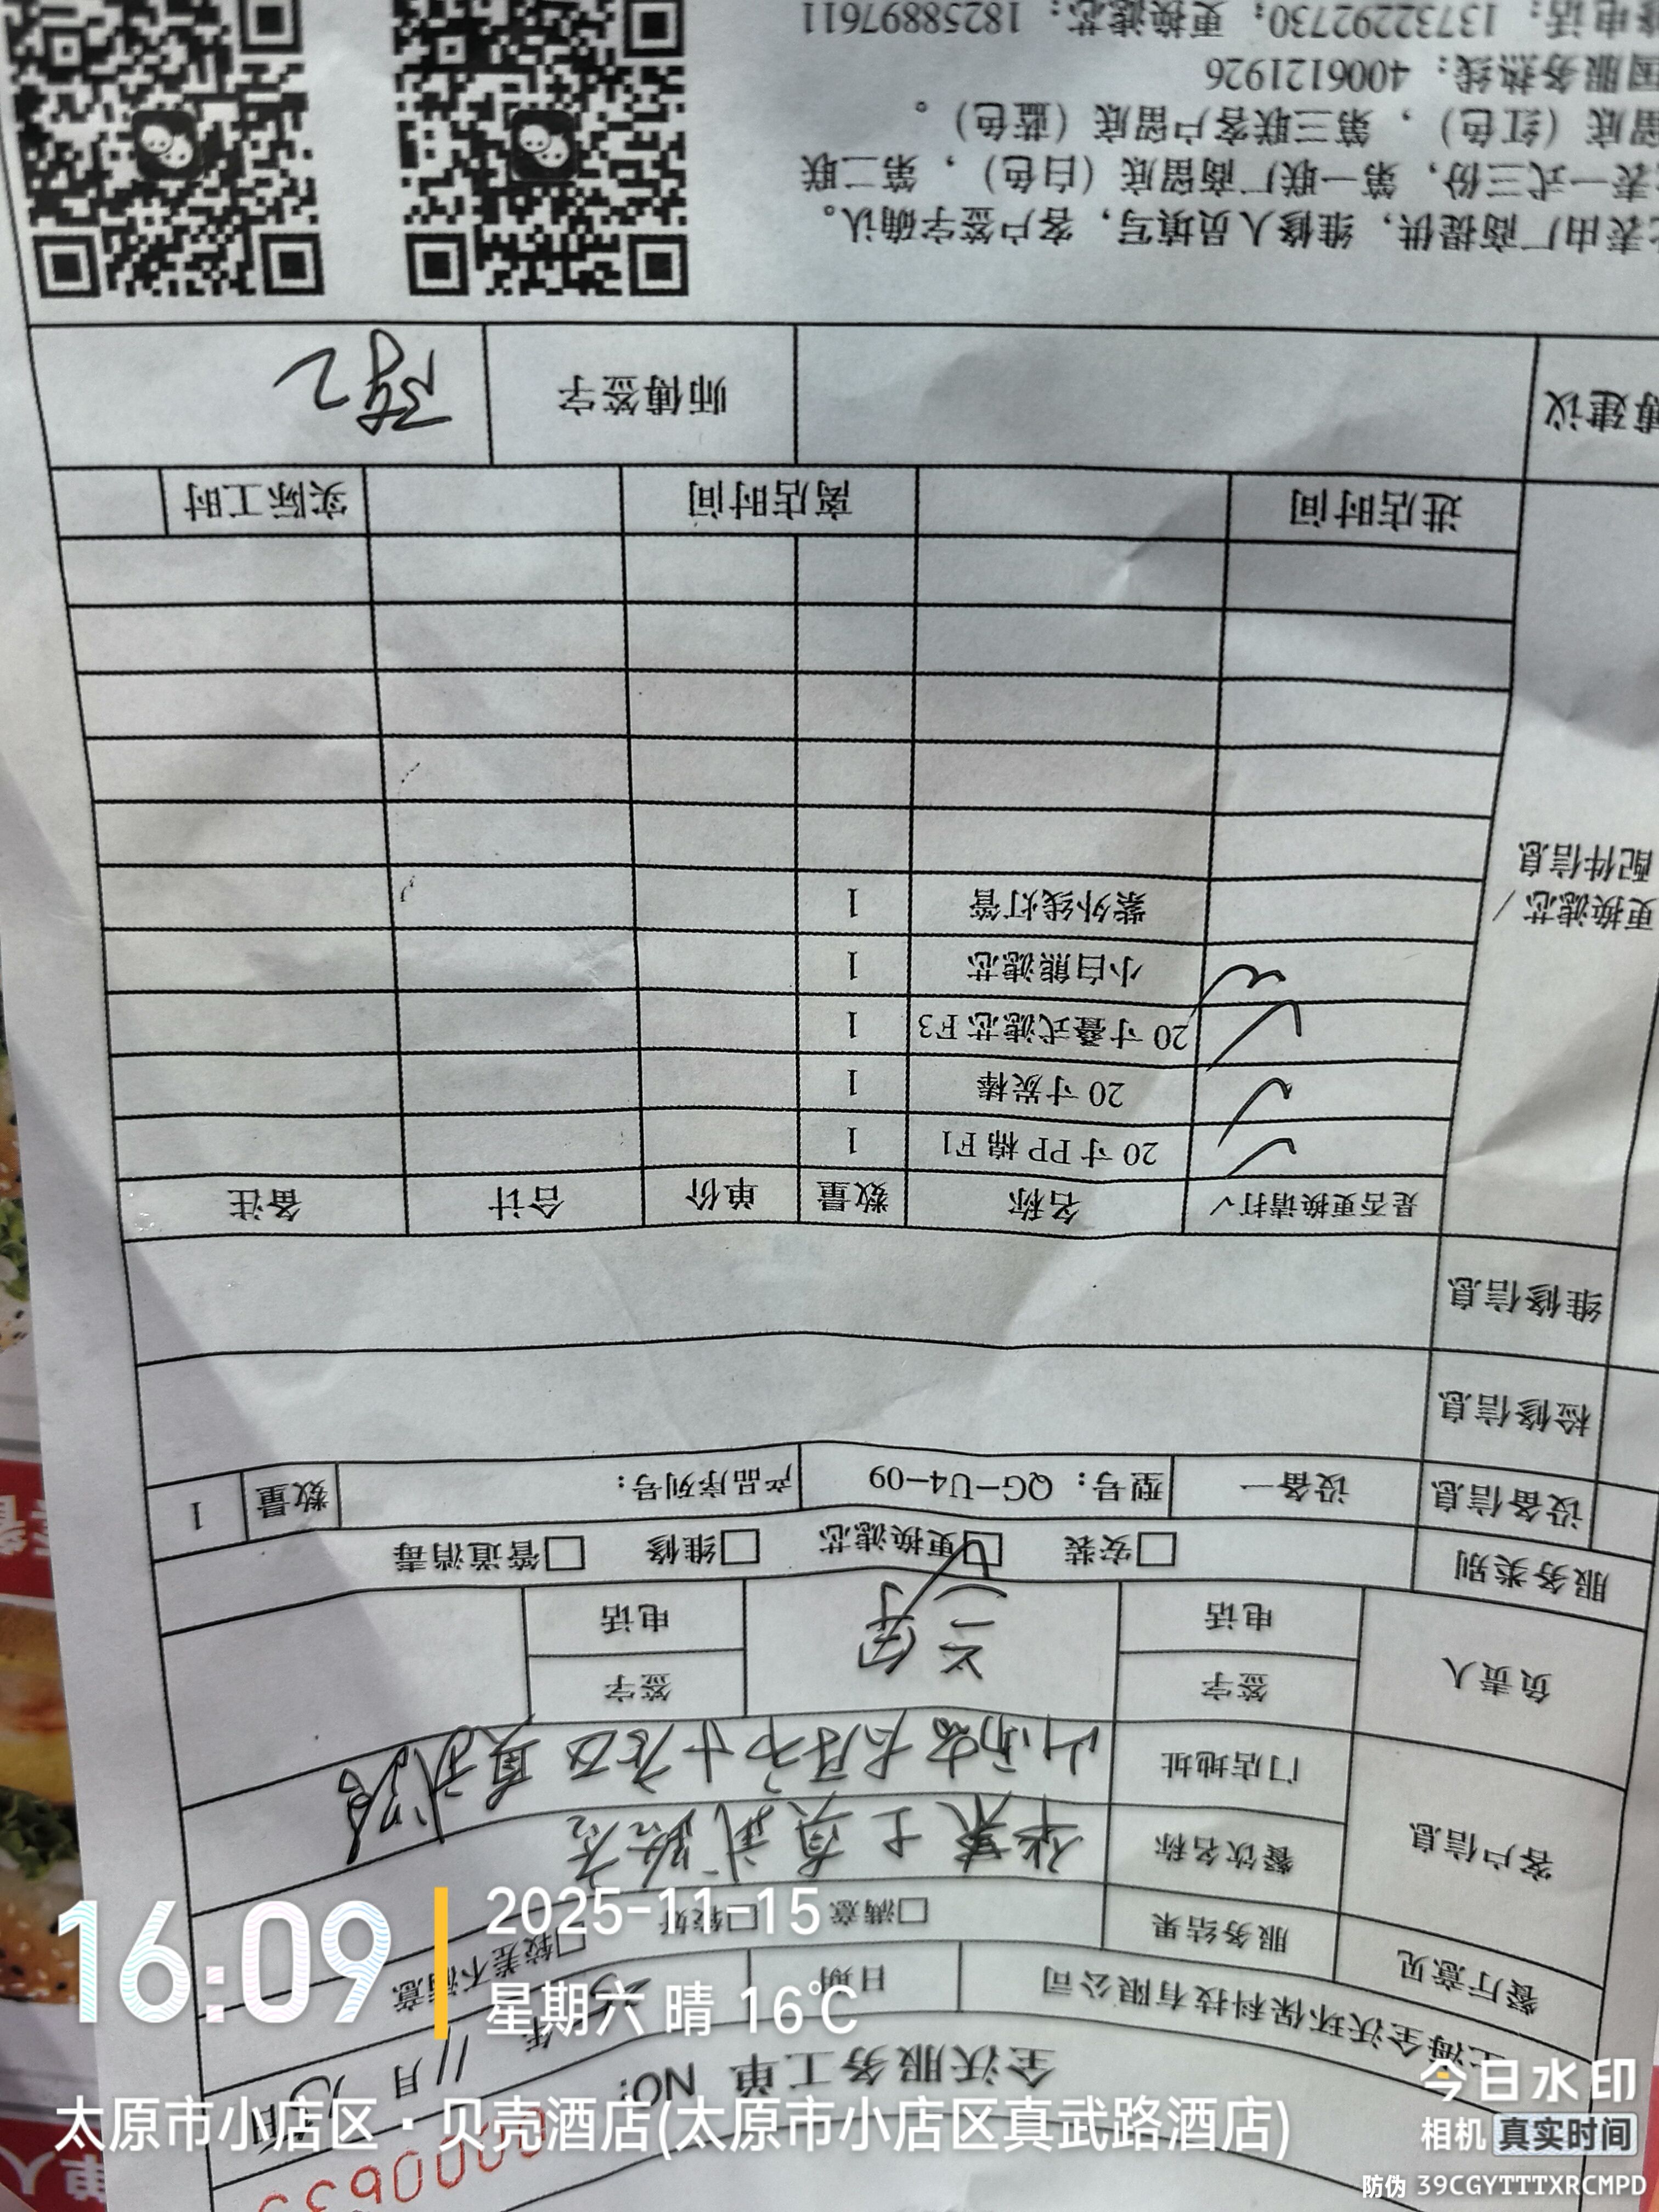 全沃服务工单 NO:
上海全沃环保科技有限公司 日期 年 11月 日
餐厅意见 服务结果 □满意 □较好 □较差不满意
客户信息 餐饮名称 华莱士真武路店
门店地址 山西省太原市小店区真武路
负责人 签字 签字
电话 电话
服务类别 □安装 □更换滤芯 □维修 □管道消毒
设备信息 设备一 型号：QG-U4-09 产品序列号： 数量 1
检修信息
维修信息
更换滤芯/
配件信息
是否更换请打√ 名称 数量 单价 合计 备注
√ 20寸PP棉F1 1
√ 20寸炭棒 1
√ 20寸叠式滤芯F3 1
小白熊滤芯 1
紫外线灯管 1
进店时间 离店时间 实际工时
建议 师傅签字
表由厂商提供，维修人员填写，客户签字确认。
表一式三份，第一联厂商留底（白色），第二联
留底（红色），第三联客户留底（蓝色）。
国服务热线：4006121926
电话：13732292730；更换滤芯：18258897611
16:09
2025-11-15
星期六 晴 16℃
太原市小店区·贝壳酒店(太原市小店区真武路酒店)
今日水印
相机 真实时间
防伪 39CGYTTTXRCMPD